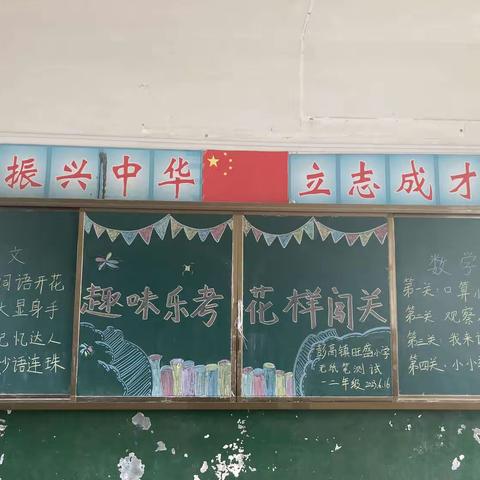 振兴中华
立志成才
文
词语开花
大显身手
记忆达人
妙语连珠
趣味乐考 花样闯关
彭高镇旺盛小学
无纸笔测试
一二年级 2023.6.16
数学
第一关:口算小
第二关:观察
第三关:我来
第四关:小小